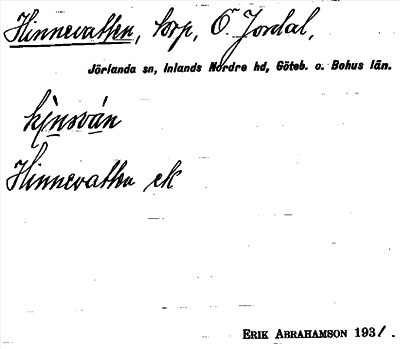 Hinnevatten, torp, Ö. Jordal,
Jörlanda sn, Inlands Nordre hd, Göteb. o. Bohus län.
Hinnevatten ek
ERIK ABRAHAMSON 1931.